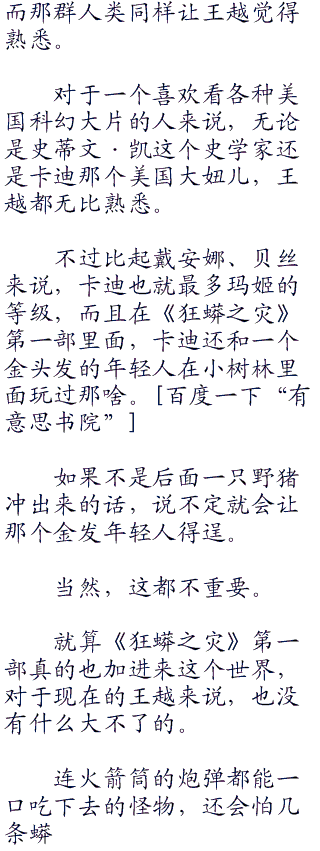 而那群人类同样让王越觉得
熟悉。
对于一个喜欢看各种美
国科幻大片的人来说，无论
是史蒂文·凯这个史学家还
是卡迪那个美国大妞儿，王
越都无比熟悉。
不过比起戴安娜、贝丝
来说，卡迪也就最多玛姬的
等级，而且在《狂蟒之灾》
第一部里面，卡迪还和一个
金头发的年轻人在小树林里
面玩过那啥。[百度一下“有
意思书院”]
如果不是后面一只野猪
冲出来的话，说不定就会让
那个金发年轻人得逞。
当然，这都不重要。
就算《狂蟒之灾》第一
部真的也加进来这个世界，
对于现在的王越来说，也没
有什么大不了的。
连火箭筒的炮弹都能一
口吃下去的怪物，还会怕几
条蟒